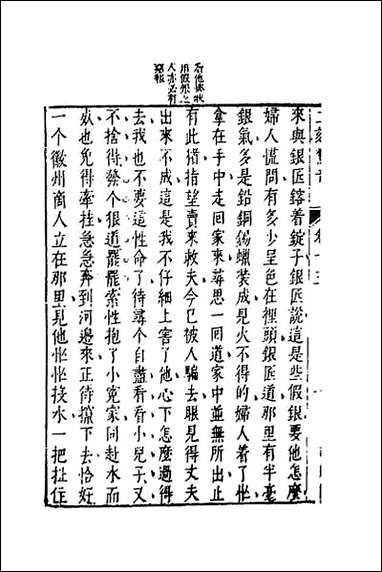 二刻驚奇 卷十五
用假銀之
人亦必有
惡報
來與銀匠鎔着錠子銀匠說這是些假銀要他怎麼
婦人慌問有多少呈色在裡頭銀匠道那里有半毫
銀氣多是鉛銅錫蠟裝成見火不得的婦人着了忙
拿在手中走回家來尋思一回道家中並無所出止
有此猪指望賣來救夫今已被人騙去眼見得丈夫
出來不成這是我不仔細上害了他心下怎麼過得
去我也不要這性命了待尋個自盡看看小兒子又
不捨得發個狠道罷罷索性抱了小寃家同赴水而
死也免得牽挂急急奔到河邊來正待攛下去恰好
一个徽州商人立在那里見他忙忙投水一把扯住